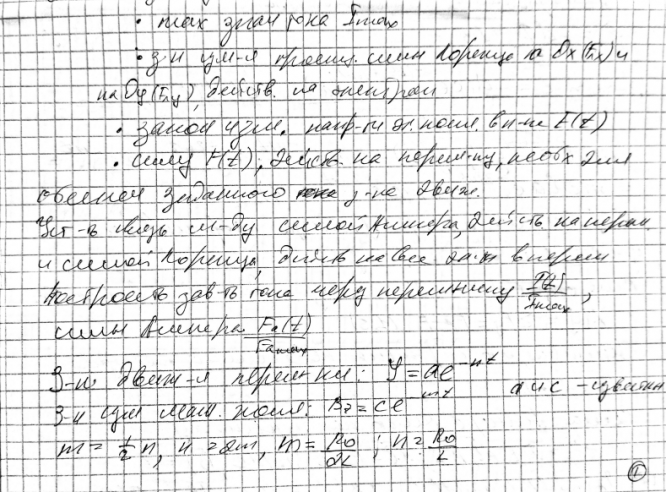 • max знач тока Imax
• з-н изм-я проекц. силы Лоренца на Ox(Fлx) и
на Oy(Fлy), действ. на электрон
• закон изм. напр-ти эл. поля в п-ке E(t)
• силу F(t), действ. на перем-ку, необх для
обеспеч заданного з-на движ.
Уст-ть связь м-ду силой Ампера, действ на перем
и силой Лоренца, действ на все эл-ны в перем
Построить зав-ть тока через перемычку I(t)/Imax,
силы Ампера Fa(t)/Famax
З-н движ-я перемычки: y=ae^-nt
З-н изм магн. поля: Bz=ce^-mt a и c - известн
m=1/2 n, n=2m, m=R0/2L; n=R0/L
1